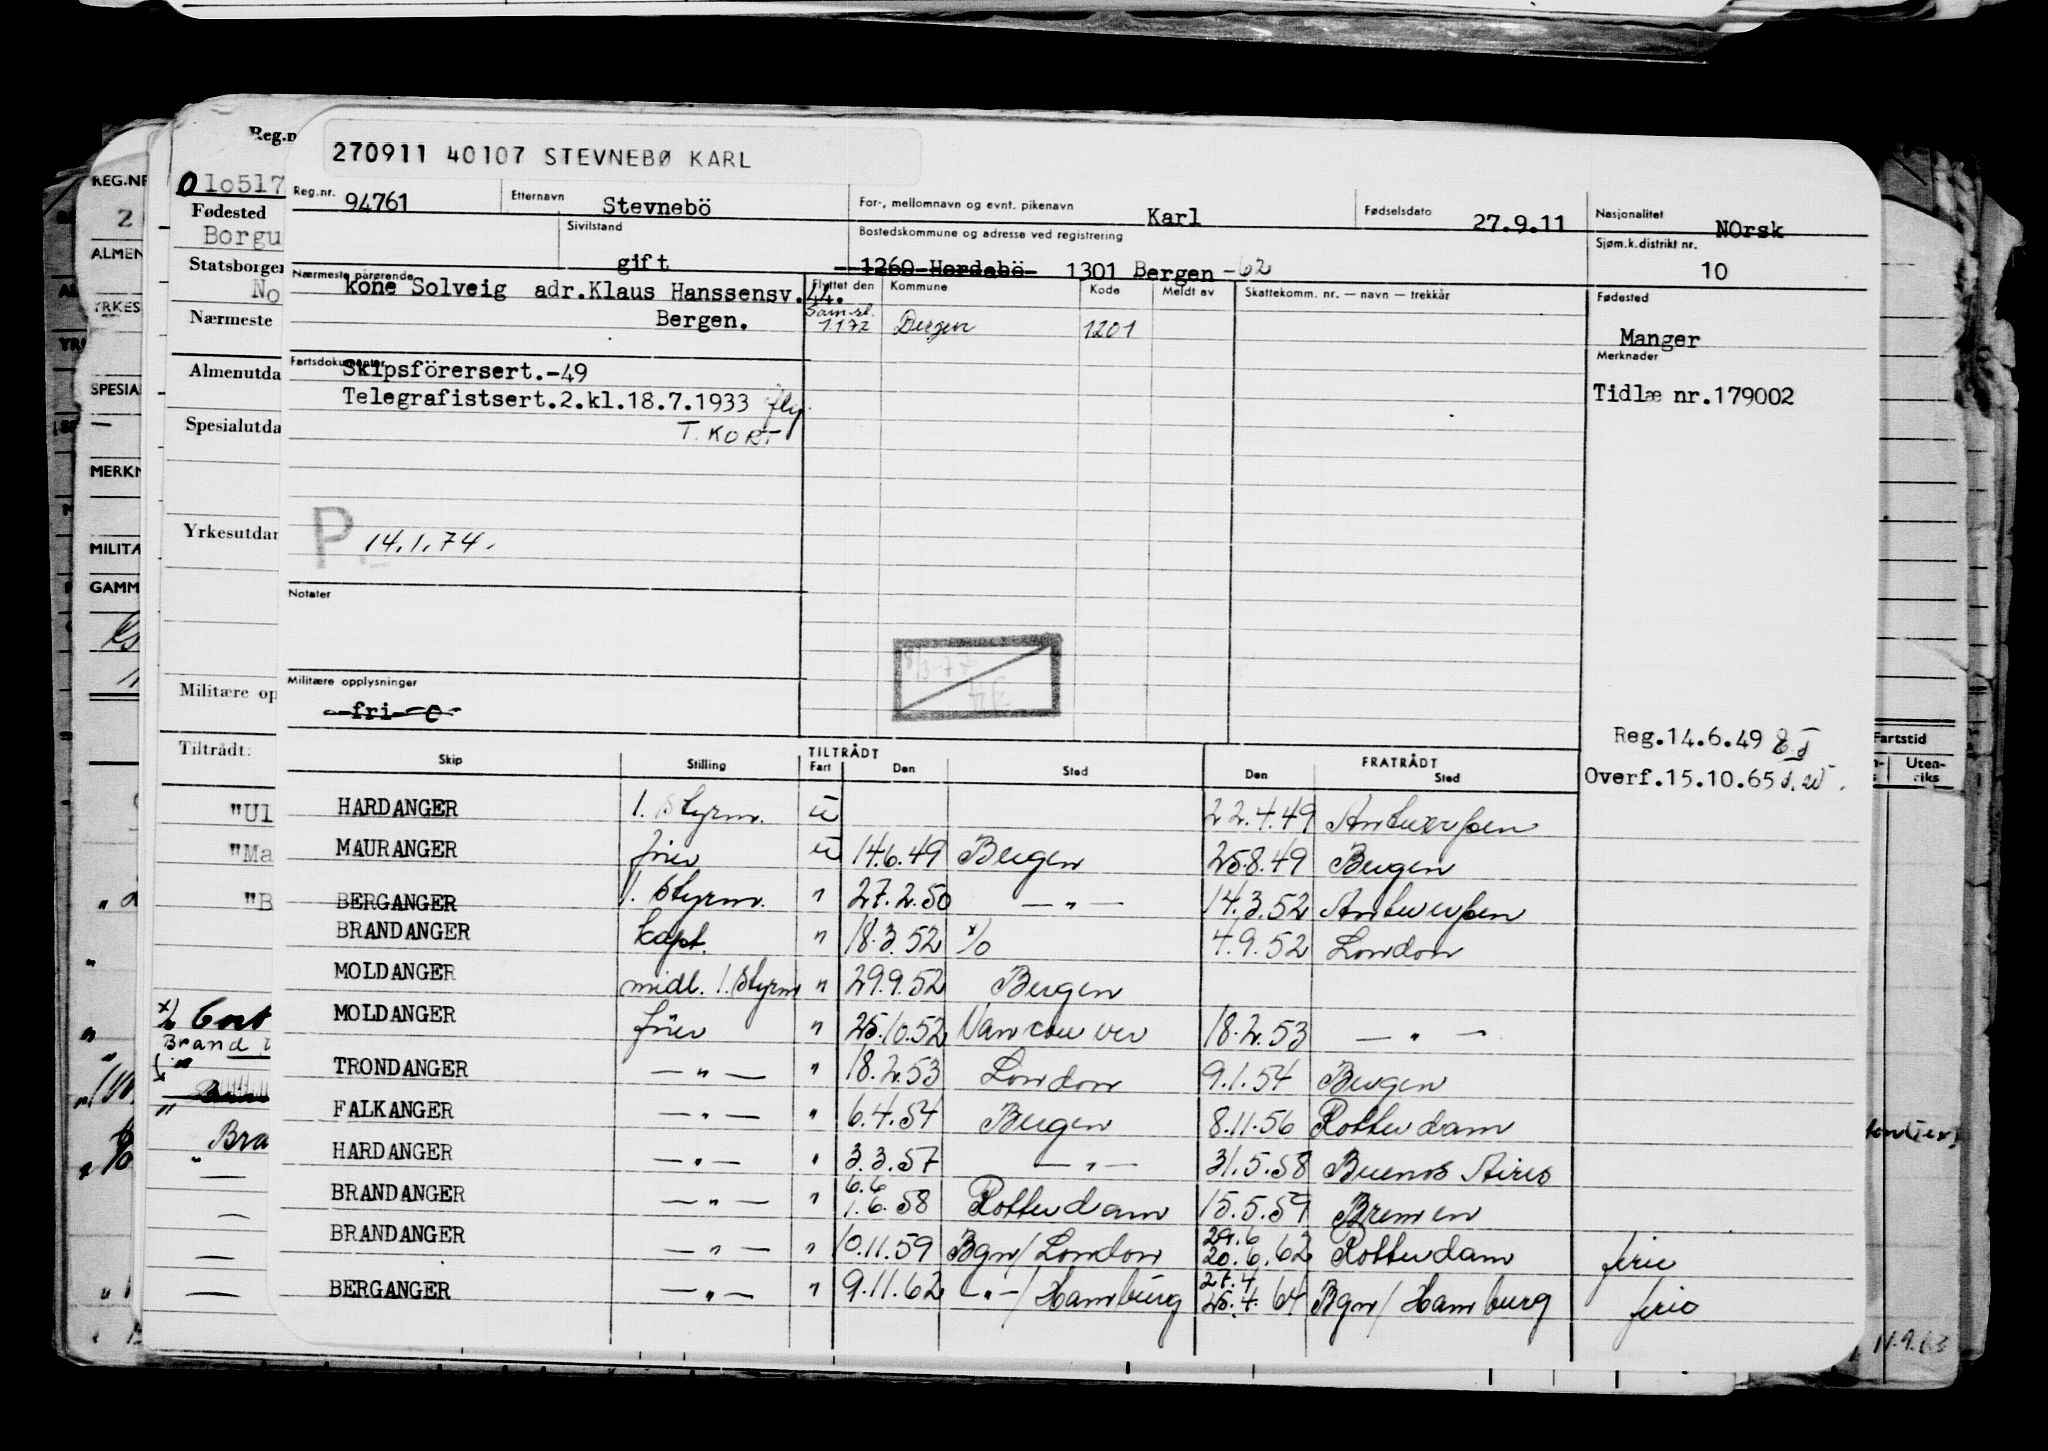 Reg.n
270911 40107 STEVNEBØ KARL
REG.NR
O 1o517
Reg.nr. 94761 Etternavn Stevnebö For-, mellomnavn og evnt. pikenavn Karl Fødselsdato 27.9.11 Nasjonalitet NOrsk
Fødested
Borgu
Sivilstand gift Bostedskommune og adresse ved registrering 1260 Hordabö 1301 Bergen -62 Sjøm.k.distrikt nr. 10
ALMEN
Statsborger
No
Nærmeste pårørende kone Solveig adr.Klaus Hanssensv.44. Flyttet den Kommune Kode Meldt av Skattekomm. nr. — navn — trekkår Fødested
Bergen. Sam.sl. 1.1 72 Bergen 1201 Manger
YRKES
Nærmeste
Merknader
Fartsdokumenter Skipsförersert.-49
Almenutda
SPESIA
Telegrafistsert.2.kl.18.7.1933 fly. Tidlæ nr.179002
T. KORT
Spesialutda
MERKN
Yrkesutdar
P. 14.1.74.
MILITÆ
GAMM
Notater
Militære op
Militære opplysninger
fri
Reg.14.6.49
Tiltrådt:
Overf.15.10.65
Fartstid
Uten-
riks
Skip Stilling TILTRÅDT Fart Den Sted FRATRÅDT Den Sted
"Ul
HARDANGER 1. Styrm. u 22.4.49 Antwerpen
"Ma
MAURANGER fører u 14.6.49 Bergen 25.8.49 Bergen
"B
BERGANGER 1. Styrm. " 27.2.50 — " — 14.3.52 Antwerpen
BRANDANGER kapt. " 18.3.52 x/o 4.9.52 London
MOLDANGER midl. 1. Styrm " 29.9.52 Bergen
MOLDANGER fører " 25.10.52 Vancouver 18.2.53 — " —
Brand
TRONDANGER — " — " 18.2.53 London 9.1.54 Bergen
FALKANGER — " — " 6.4.54 Bergen 8.11.56 Rotterdam
Bra
HARDANGER — " — " 3.3.57 — " — 31.5.58 Buenos Aires
BRANDANGER — " — " 6.6 1.6.58 Rotterdam 15.5.59 Bremen
BRANDANGER — " — " 10.11.59 Bgn/London 29.6 20.6.62 Rotterdam ferie
BERGANGER — " — " 9.11.62 — " —/Hamburg 27.4 25.4.64 Bgn/Hamburg ferie
11.9.63